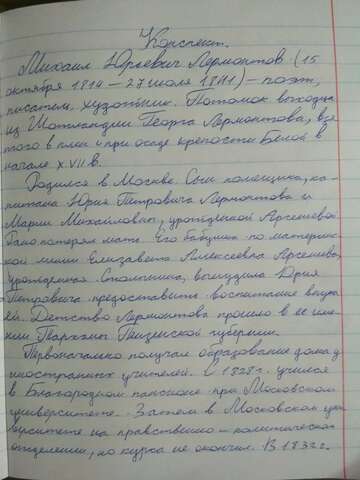 Конспект.
Михаил Юрьевич Лермонтов (15
октября 1814 – 27 июля 1841) – поэт,
писатель, художник. Потомок выходца
из Шотландии Георга Лермонтова, взя
того в плен при осаде крепости Белой в
начале XVII в.
Родился в Москве. Сын помещика, ка-
питана Юрия Петровича Лермонтова и
Марии Михайловны, урождённой Арсеньевой.
Рано потерял мать. Его бабушка по материн
ской линии Елизавета Алексеевна Арсеньева,
урождённая Столыпина, вынудила Юрия
Петровича предоставить воспитание внука
ей. Детство Лермонтова прошло в её име-
нии Тарханы Пензенской губернии.
Первоначально получал образование дома у
иностранных учителей. С 1828г. учился
в Благородном пансионе при Московском
университете. Затем в Московском уни
верситете на нравственно – политическом
отделении, но курса не окончил. В 1832г.